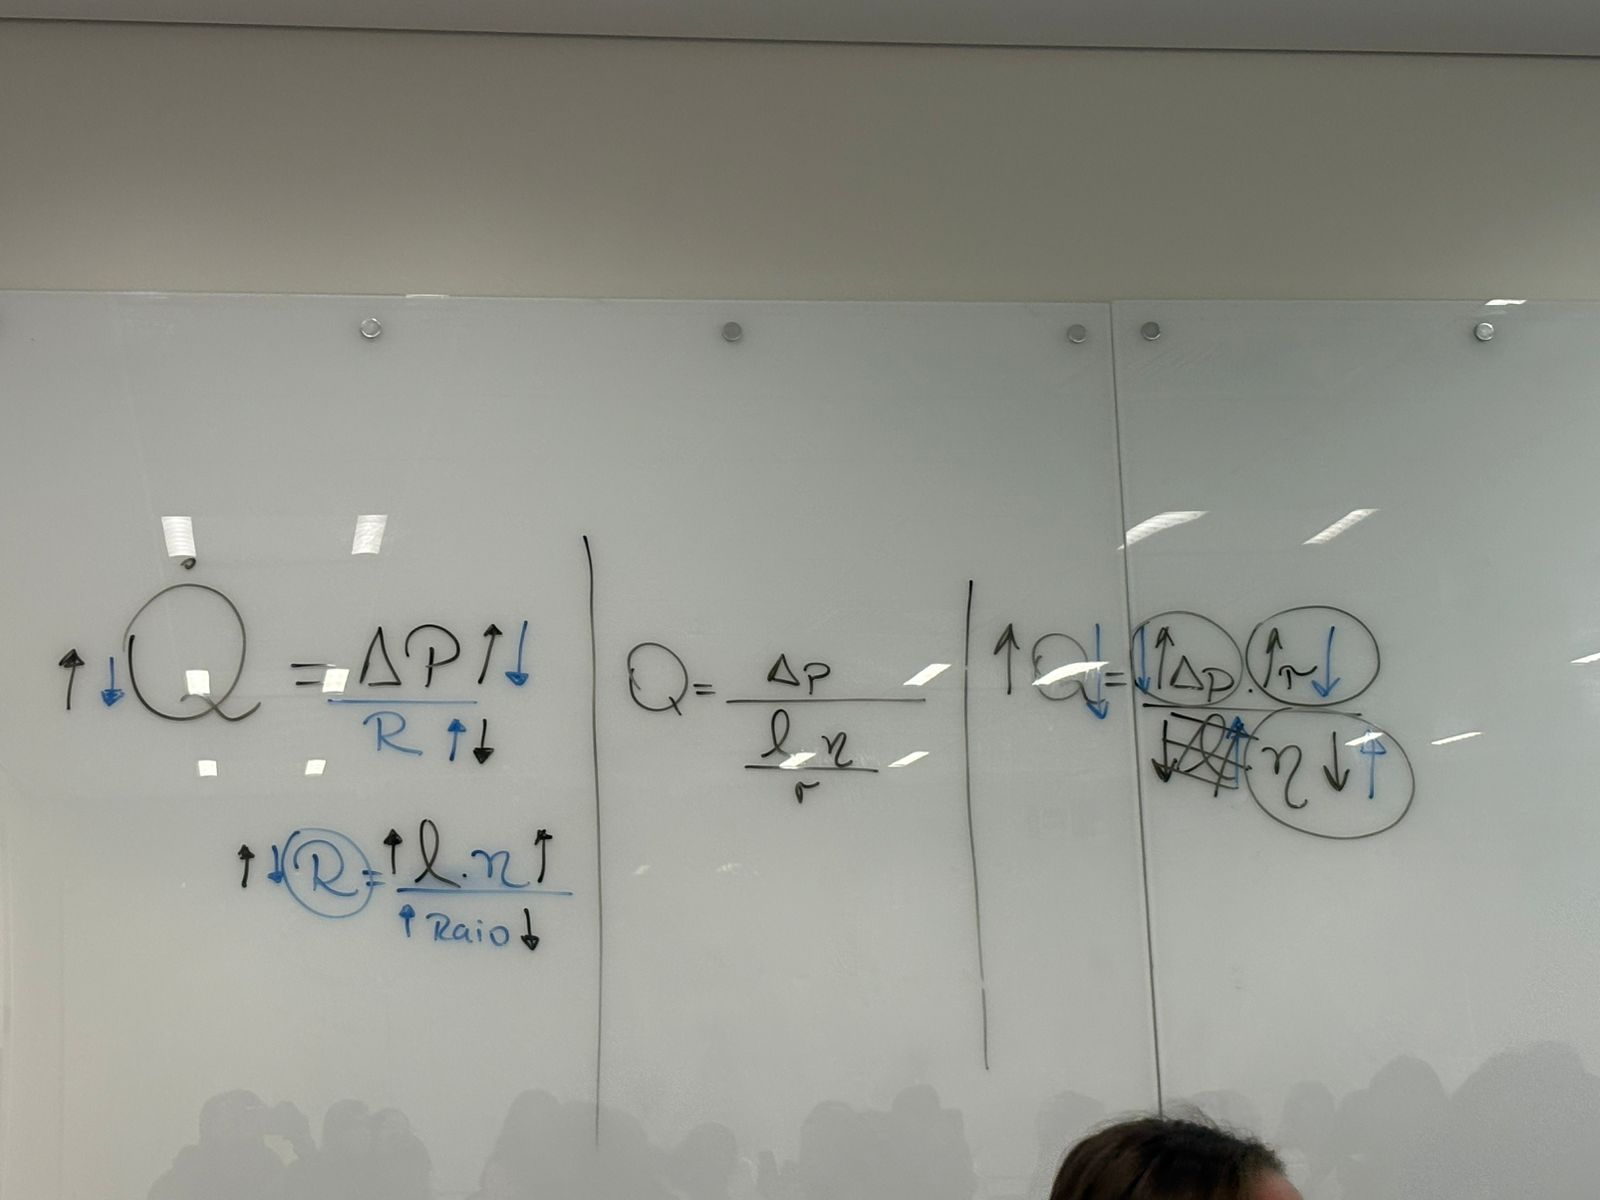 ↑ ↓ Q̇ = ΔP ↑ ↓
R ↑ ↓
↑ ↓ R = ↑ l . η ↑
↑ Raio ↓
Q = Δp
l η
r
↑ Q ↓ = ↓ ↑ Δp . ↑ r ↓
↓ l ↑ η ↓ ↑